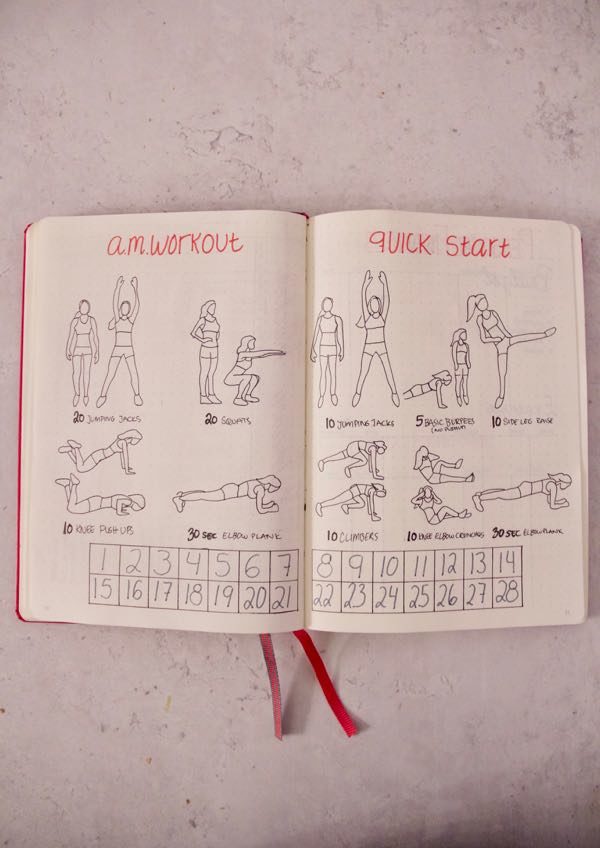 a.m. workout
20 Jumping Jacks
20 Squats
10 Knee Push Up
30 sec Elbow Plank
1 2 3 4 5 6 7
15 16 17 18 19 20 21
Quick Start
10 Jumping Jacks
5 Basic Burpees
10 Side Leg Raise
10 Climbers
10 Knee Elbow Crunches
30 sec Elbow Plank
8 9 10 11 12 13 14
22 23 24 25 26 27 28